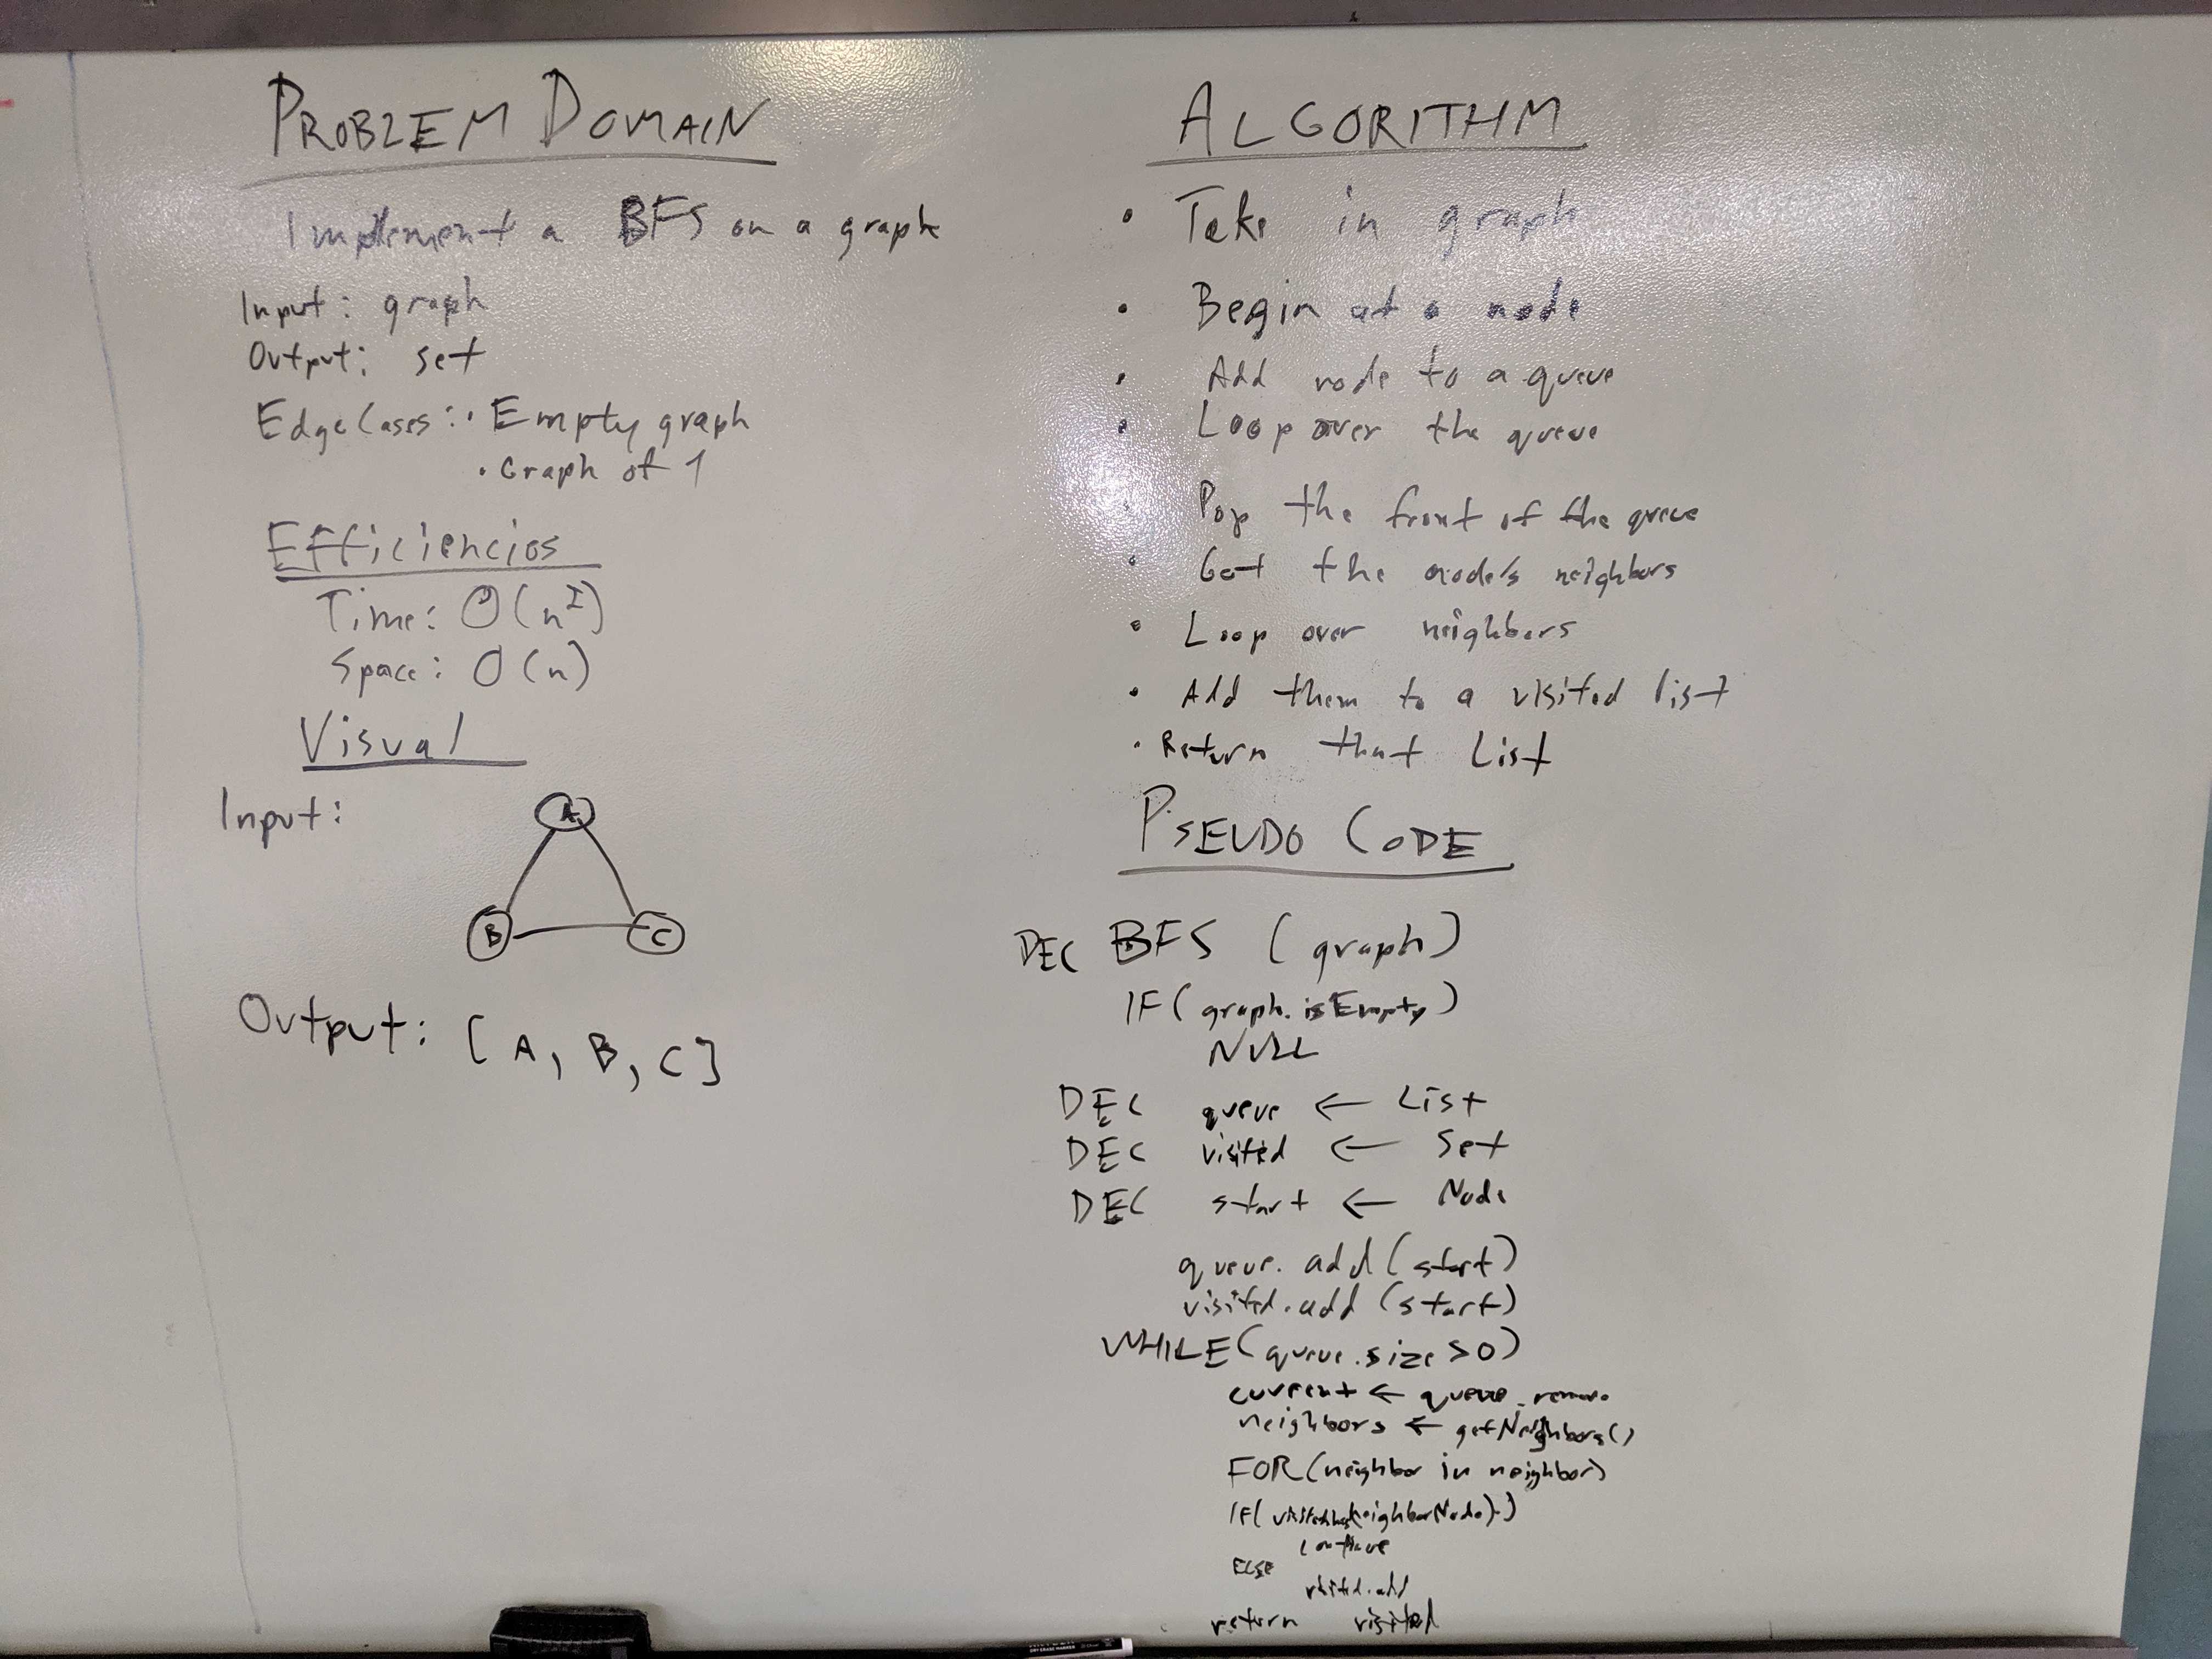 PROBLEM DOMAIN
Implement a BFS on a graph
Input: graph
Output: set
Edge Cases: • Empty graph
• Graph of 1
Efficiencies
Time: O(n²)
Space: O(n)
Visual
Input:
A
B
C
Output: [A, B, C]
ALGORITHM
• Take in graph
• Begin at a node
• Add node to a queue
• Loop over the queue
• Pop the front of the queue
• Get the node's neighbors
• Loop over neighbors
• Add them to a visited list
• Return that List
PSEUDO CODE
DEC BFS (graph)
IF (graph.isEmpty)
NULL
DEC queue ← List
DEC visited ← Set
DEC start ← Node
queue.add(start)
visited.add(start)
WHILE(queue.size > 0)
current ← queue.remove
neighbors ← getNeighbors()
FOR(neighbor in neighbor)
IF(
continue
ELSE
visited.add
return visited
DRY ERASE MARKER